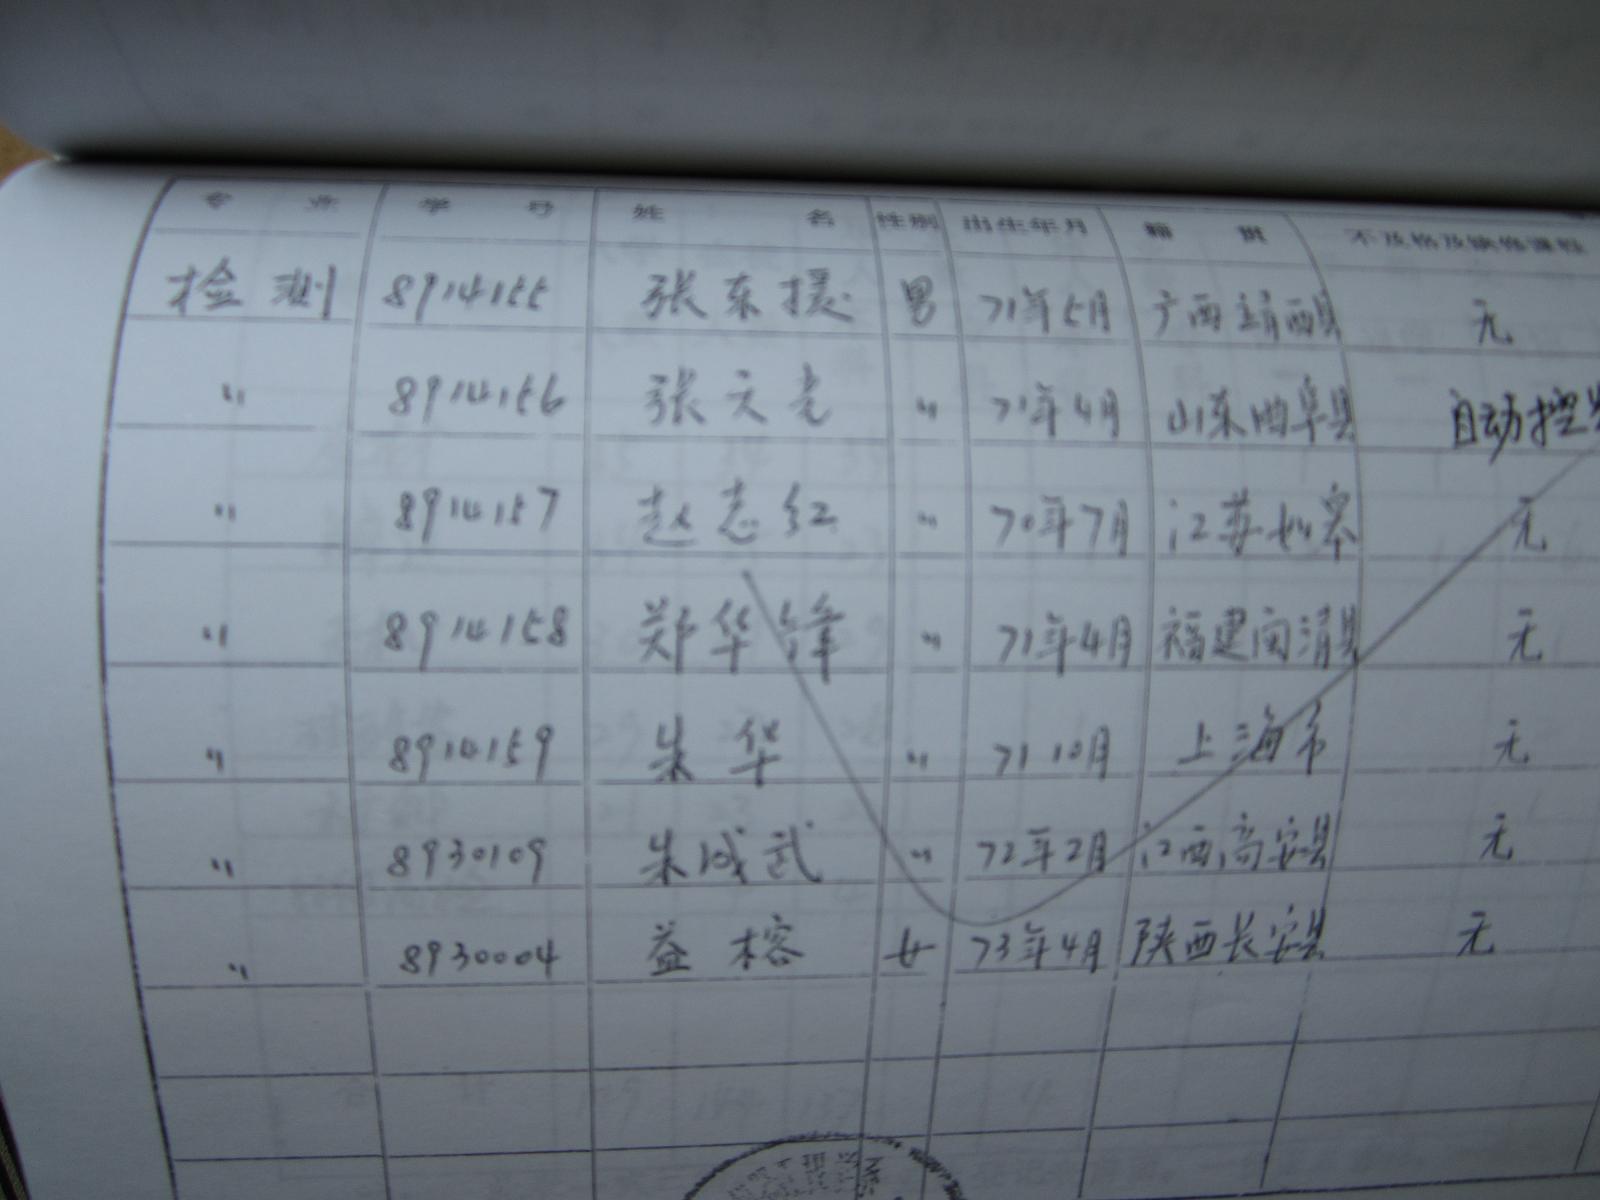 专业 学号 姓名 性别 出生年月 籍贯 不及格及缺修课程
检测 8914155 张东援 男 71年5月 广西靖西县 无
〃 8914156 张天光 〃 71年4月 山东曲阜县 自动控
〃 8914157 赵志红 〃 70年7月 江苏如皋 无
〃 8914158 郑华锋 〃 71年4月 福建闽清县 无
〃 8914159 朱华 〃 71 10月 上海市 无
〃 8930109 朱成武 〃 72年2月 江西高安县 无
〃 8930004 益榕 女 73年4月 陕西长安县 无